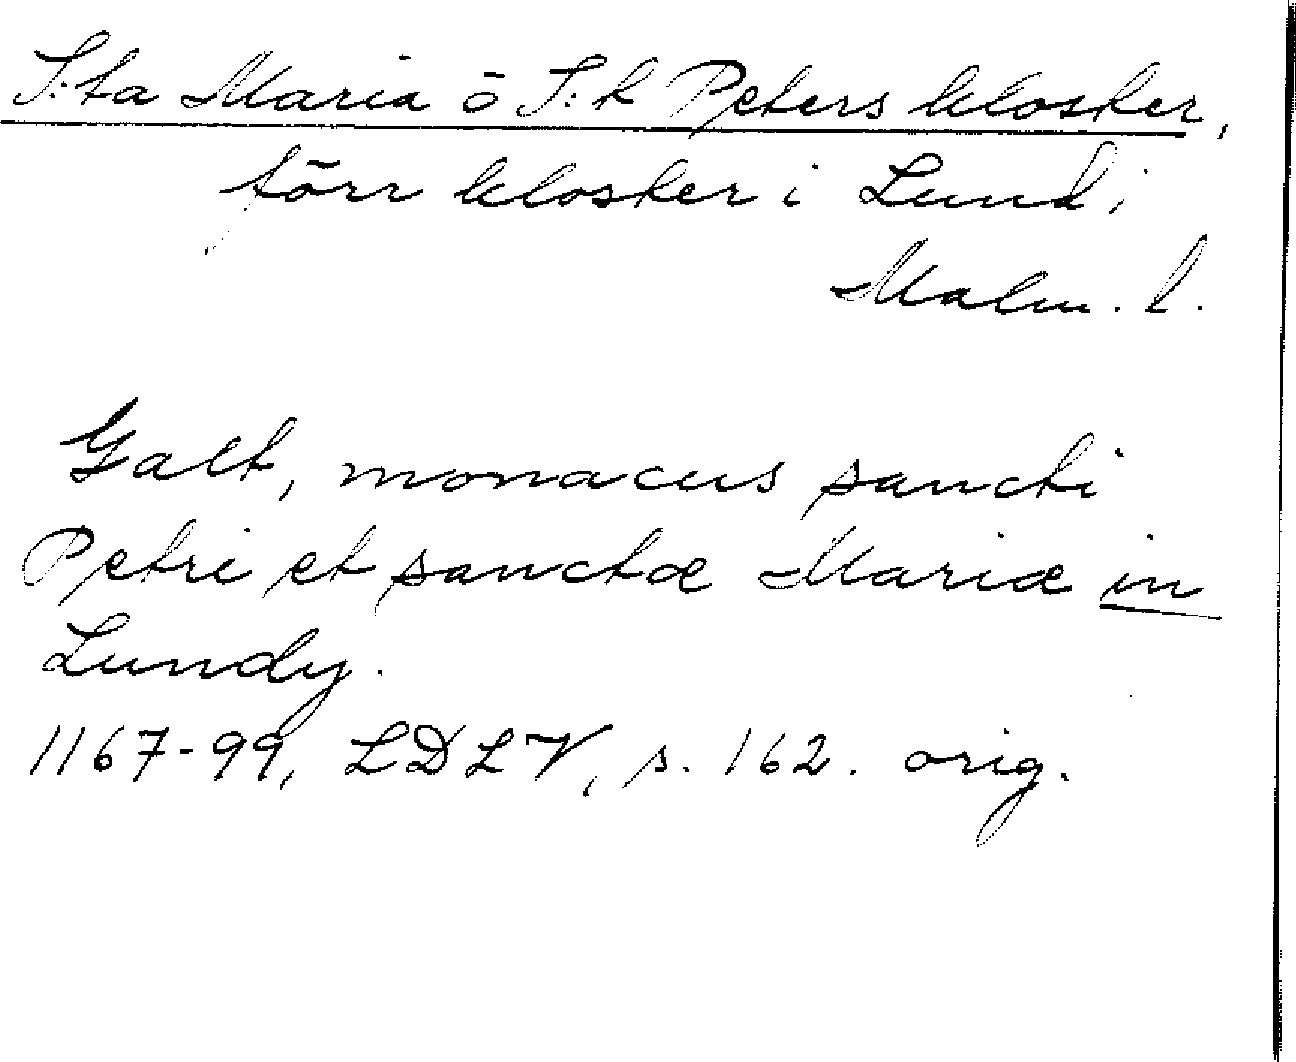 S:ta Maria o S:t Peters kloster,
förr kloster i Lund,
Malm. l.
Galt, monacus sancti
Petri et sanctæ Mariæ in
Lundy.
1167-99, LDLV, s. 162. orig.